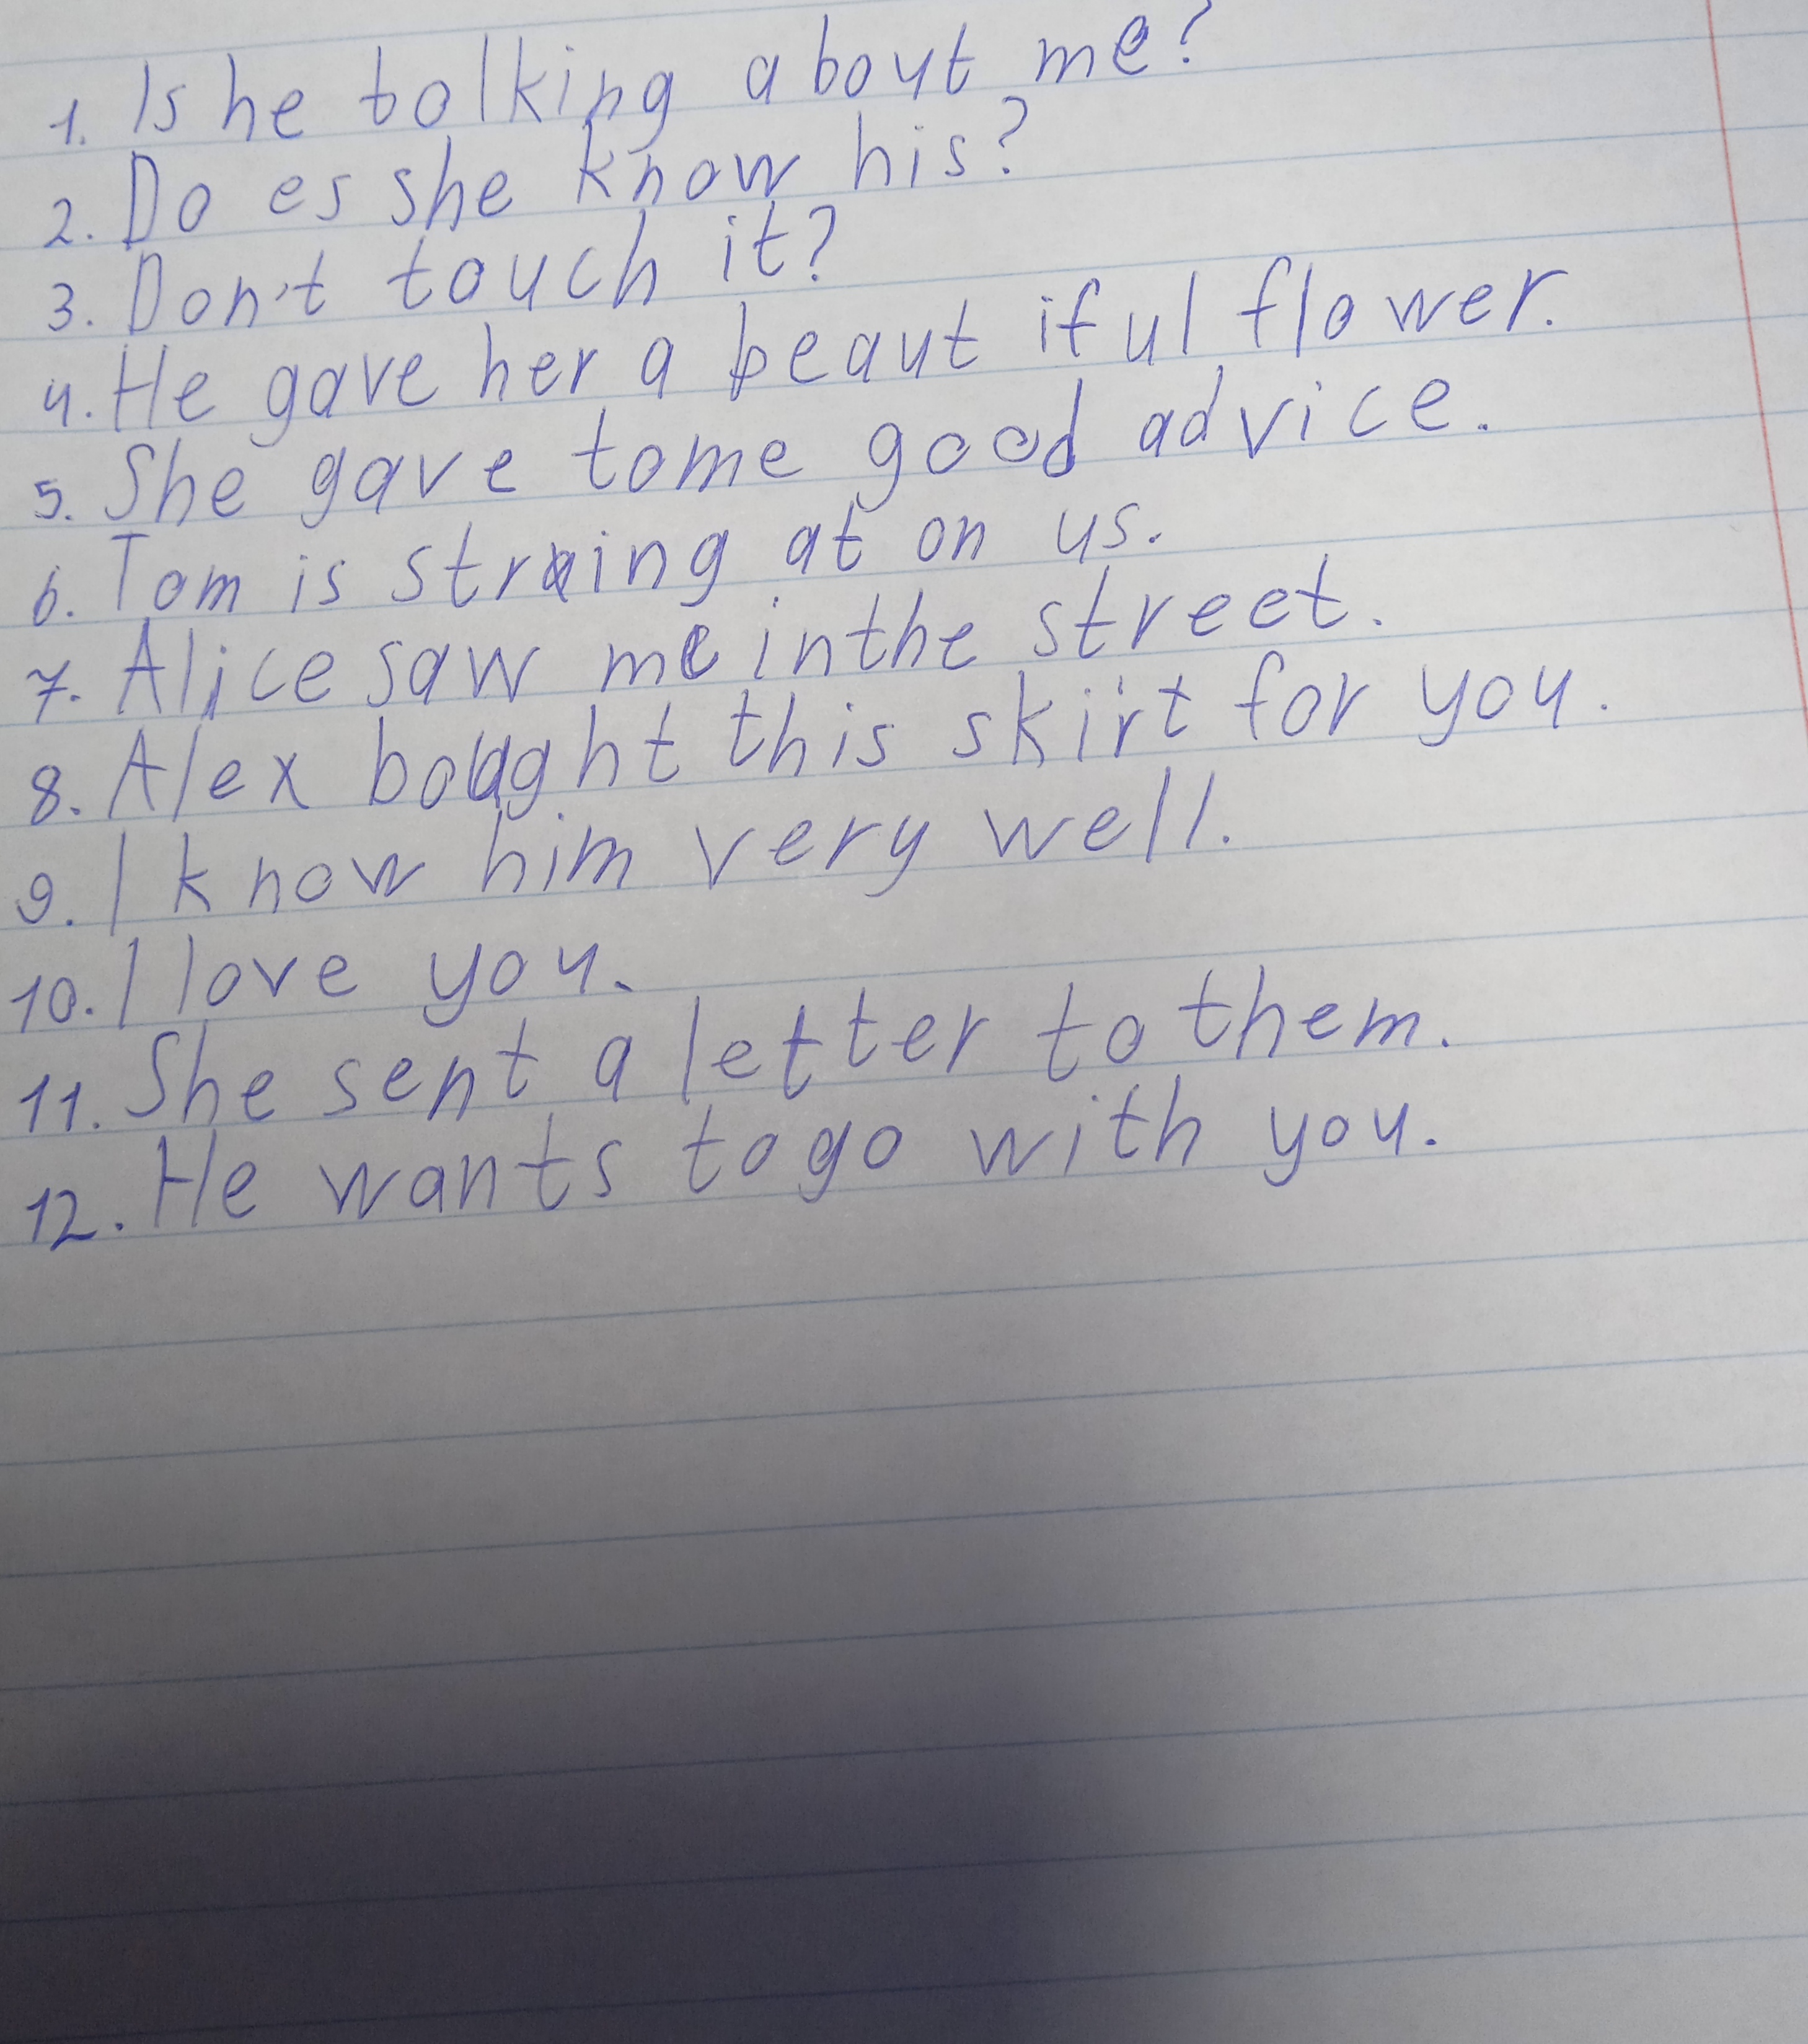 1. Is he tolking about me?
2. Does she know his?
3. Don't touch it?
4. He gave her a beautiful flower.
5. She gave to me good advice.
6. Tom is string at on us.
7. Alice saw me in the street.
8. Alex bought this skirt for you.
9. I know him very well.
10. I love you.
11. She sent a letter to them.
12. He wants to go with you.